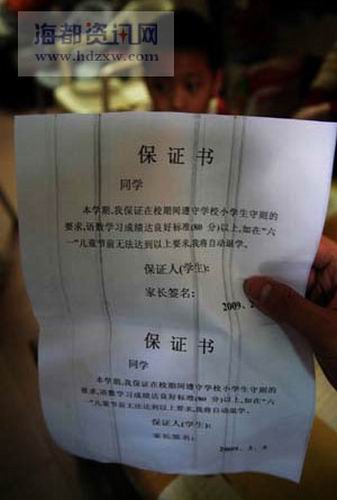 海都资讯网
www.hdzxw.com
保证书
同学
本学期,我保证在校期间遵守学校小学生守则的
要求,语数学习成绩达良好标准(80分)以上,如在"六
一"儿童节前无法达到以上要求,我将自动退学。
保证人(学生):
家长签名:
2009.
保证书
同学
本学期,我保证在校期间遵守学校小学生守则的
要求,语数学习成绩达良好标准(80分)以上,如在"六
一"儿童节前无法达到以上要求,我将自动退学。
保证人(学生):
家长签名:
2009.